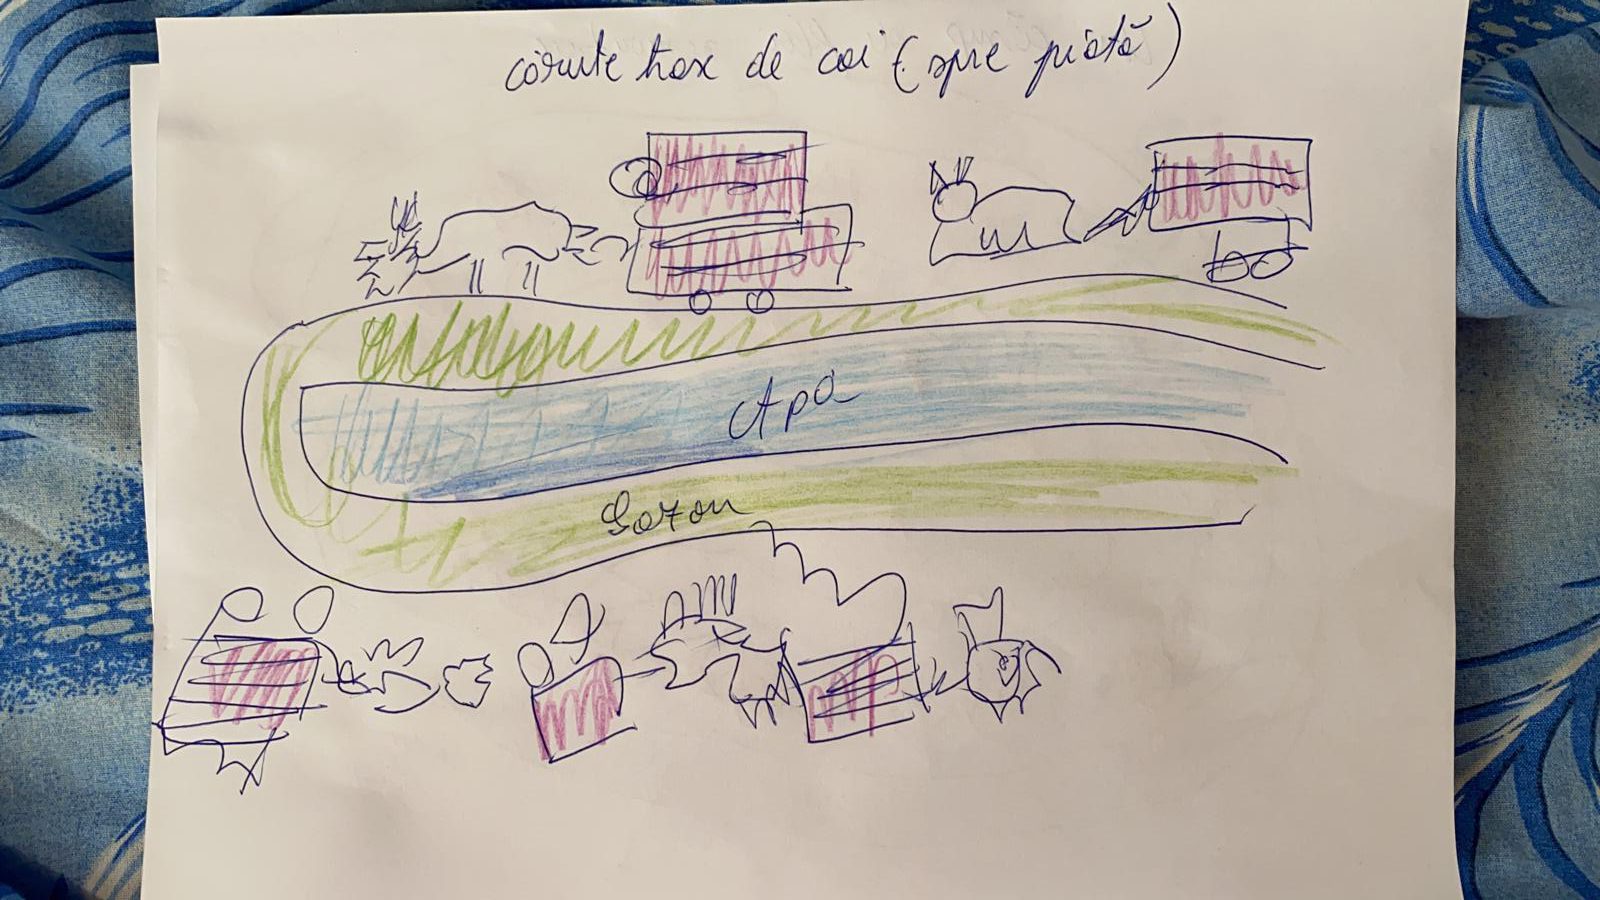 căruțe trase de cai (spre piață)
Apa
Gazon